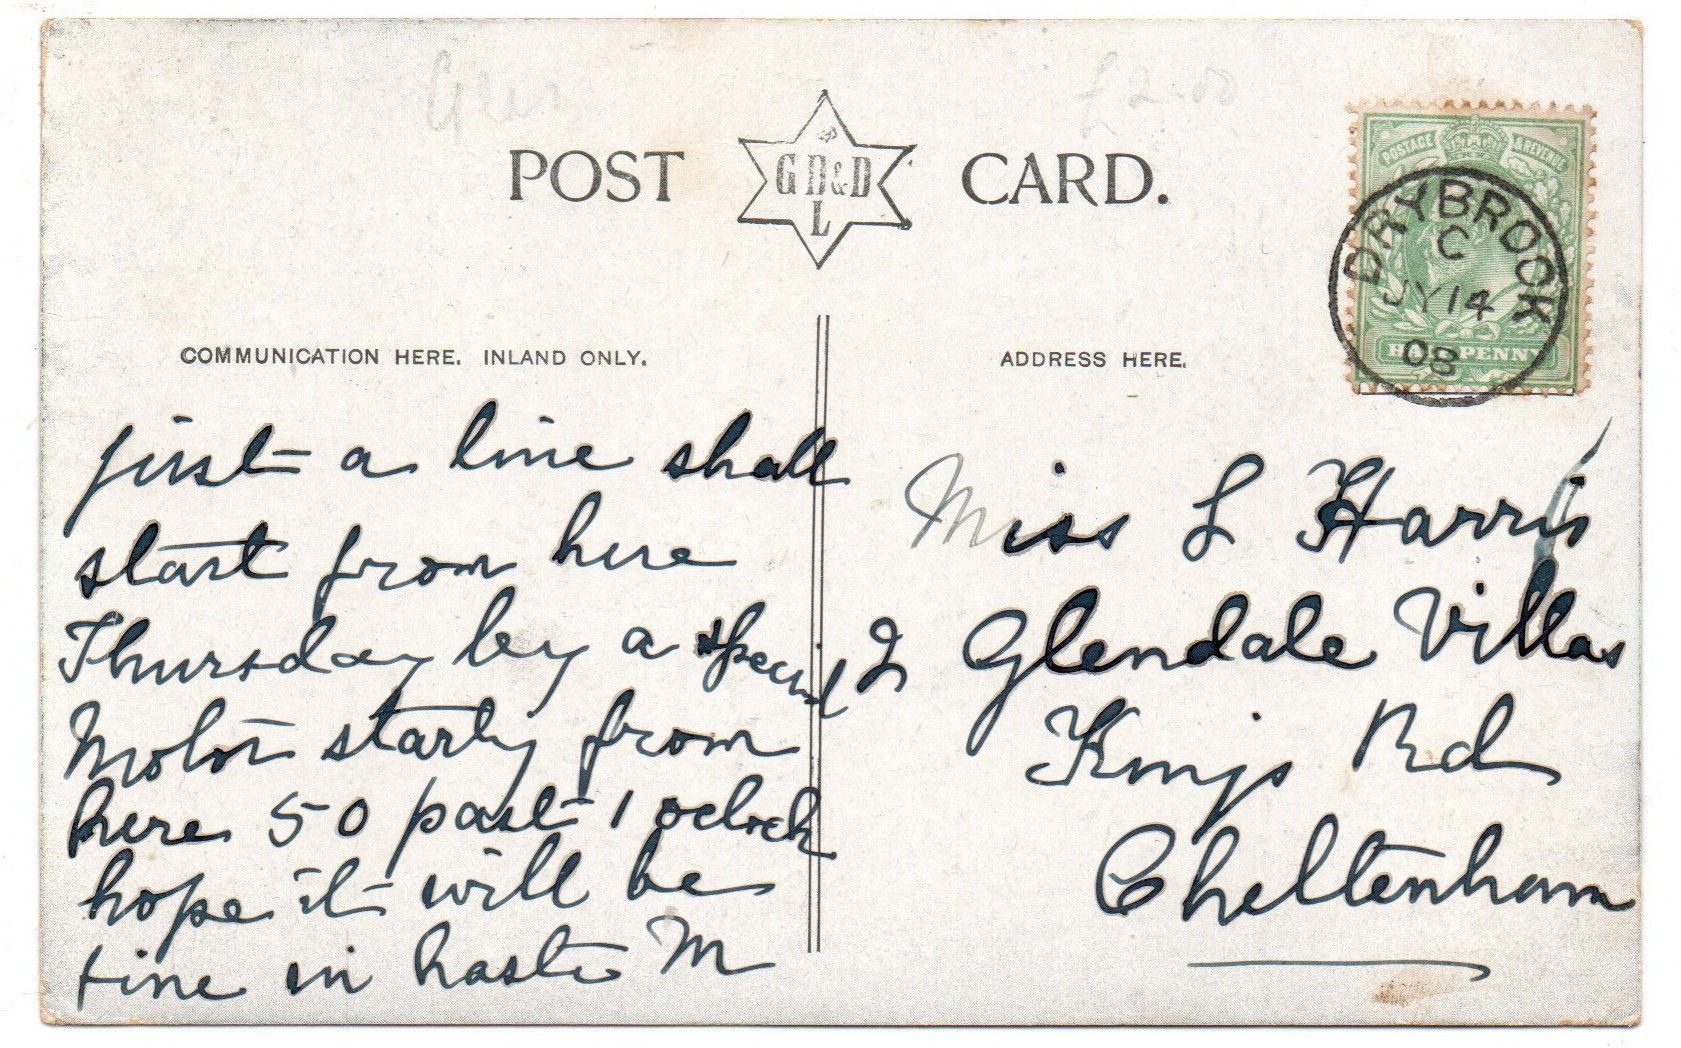 Glos
£2.00
POST CARD.
G B D & D L
COMMUNICATION HERE. INLAND ONLY.
just a line shall
start from here
Thursday by a special
Motor starty from
here 50 past 1 oclock
hope it will be
fine in haste M
ADDRESS HERE.
POSTAGE & REVENUE
HALFPENNY
DRYBROOK
C
JY 14
08
Miss L Harris
2 Glendale Villas
Kings Rd
Cheltenham